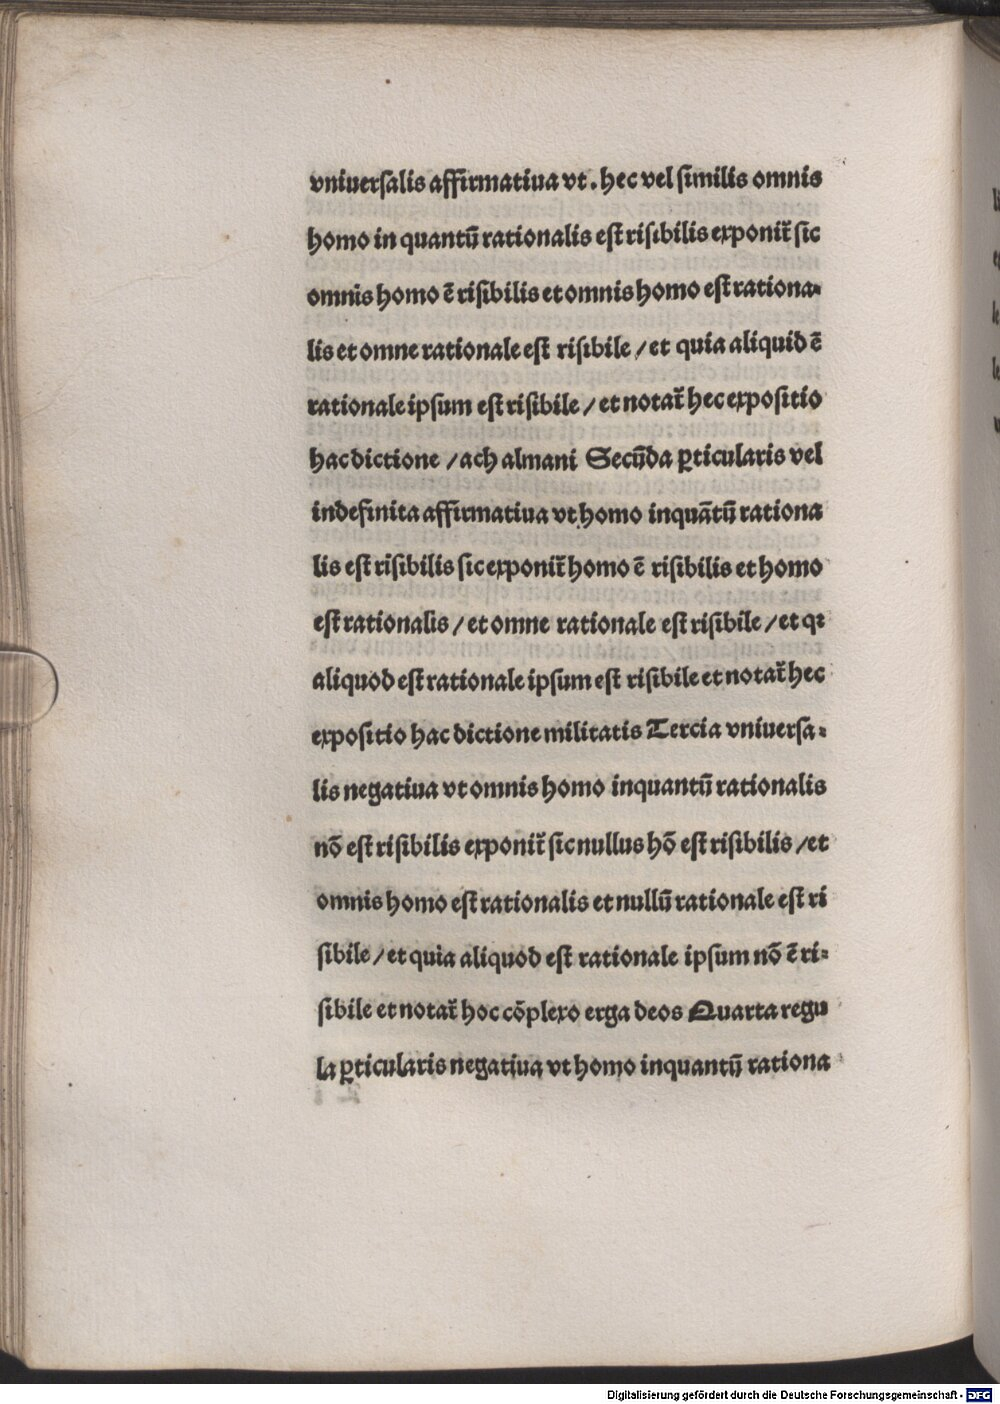 vniuerſalis affirmatiua vt . hec vel ſimilis omnis
homo in quantū rationalis eſt riſibilis exponiť ſic
omnis homo ē riſibilis et omnis homo eſt rationa⸗
lis et omne rationale eſt riſibile / et quia aliquid ē
rationale ipſum eſt riſibile / et notať hec expoſitio
hac dictione / ach almani Secūda ꝑticularis vel
indefinita affirmatiua vt homo inquātū rationa
lis eſt riſibilis ſic exponiť homo ē riſibilis et homo
eſt rationalis / et omne rationale eſt riſibile / et qꝛ
aliquod eſt rationale ipſum eſt riſibile et notať hec
expoſitio hac dictione militatis Tercia vniuerſa⸗
lis negatiua vt omnis homo inquantū rationalis
nō eſt riſibilis exponiť ſic nullus hō eſt riſibilis / et
omnis homo eſt rationalis et nullū rationale eſt ri
ſibile / et quia aliquod eſt rationale ipſum nō ē ri⸗
ſibile et notať hoc cōplexo erga deos Quarta regu
la ꝑticularis negatiua vt homo inquantū rationa
Digitalisierung gefördert durch die Deutsche Forschungsgemeinschaft - DFG